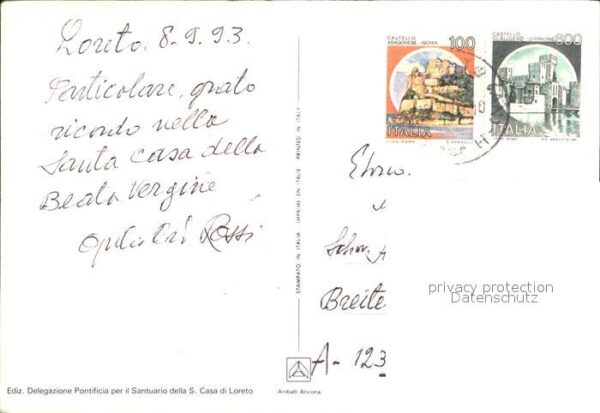 Loreto, 8-9.93.
Particolare, grato
ricordo nella
Santa Casa della
Beata Vergine
Rossi
Ediz. Delegazione Pontificia per il Santuario della S. Casa di Loreto
STAMPATO IN ITALIA IMPRIMÉ EN ITALIE PRINTED IN ITALY
Aniballi Ancona
CASTELLO
ARAGONESE - ISCHIA
100
ITALIA
CASTELLO
SCALIGERO - SIRMIONE
600
ITALIA
Breite
privacy protection
Datenschutz
A - 123